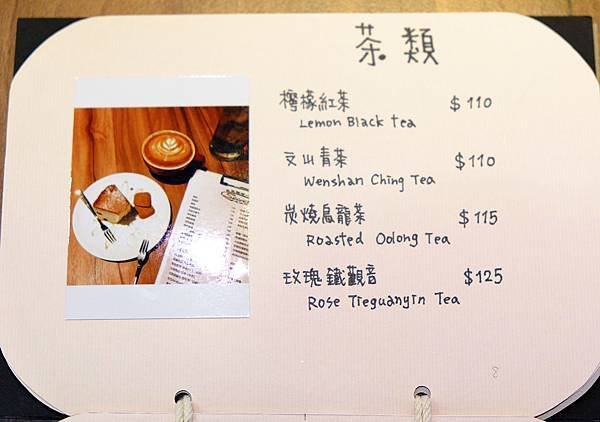 茶類
檸檬紅茶 $110
Lemon Black tea
文山青茶 $110
Wenshan Ching Tea
炭燒烏龍茶 $115
Roasted Oolong Tea
玫瑰鐵觀音 $125
Rose Tieguanyin Tea
8